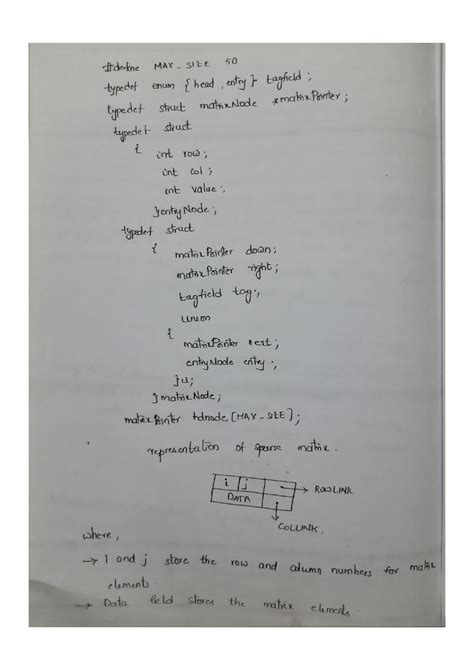 #define MAX_SIZE 50
typedef enum {head, entry} tagfield;
typedef struct matrixNode *matrixPointer;
typedef struct
{
int row;
int col;
int value;
}entryNode;
typedef struct
{
matrixPointer down;
matrixPointer right;
tagfield tag;
union
{
matrixPointer next;
entryNode entry;
}u;
}matrixNode;
matrixPointer hdnode[MAX_SIZE];
representation of sparse matrix.
i j → ROWLINK
DATA
COLLINK.
where,
→ i and j store the row and column numbers for matrix
elements.
→ Data field stores the matrix elements